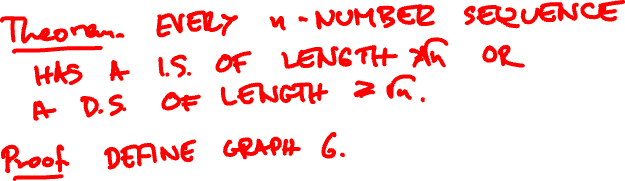 Theorem. EVERY n-NUMBER SEQUENCE
HAS A I.S. OF LENGTH ≥√n OR
A D.S. OF LENGTH ≥ √n.
Proof DEFINE GRAPH G.